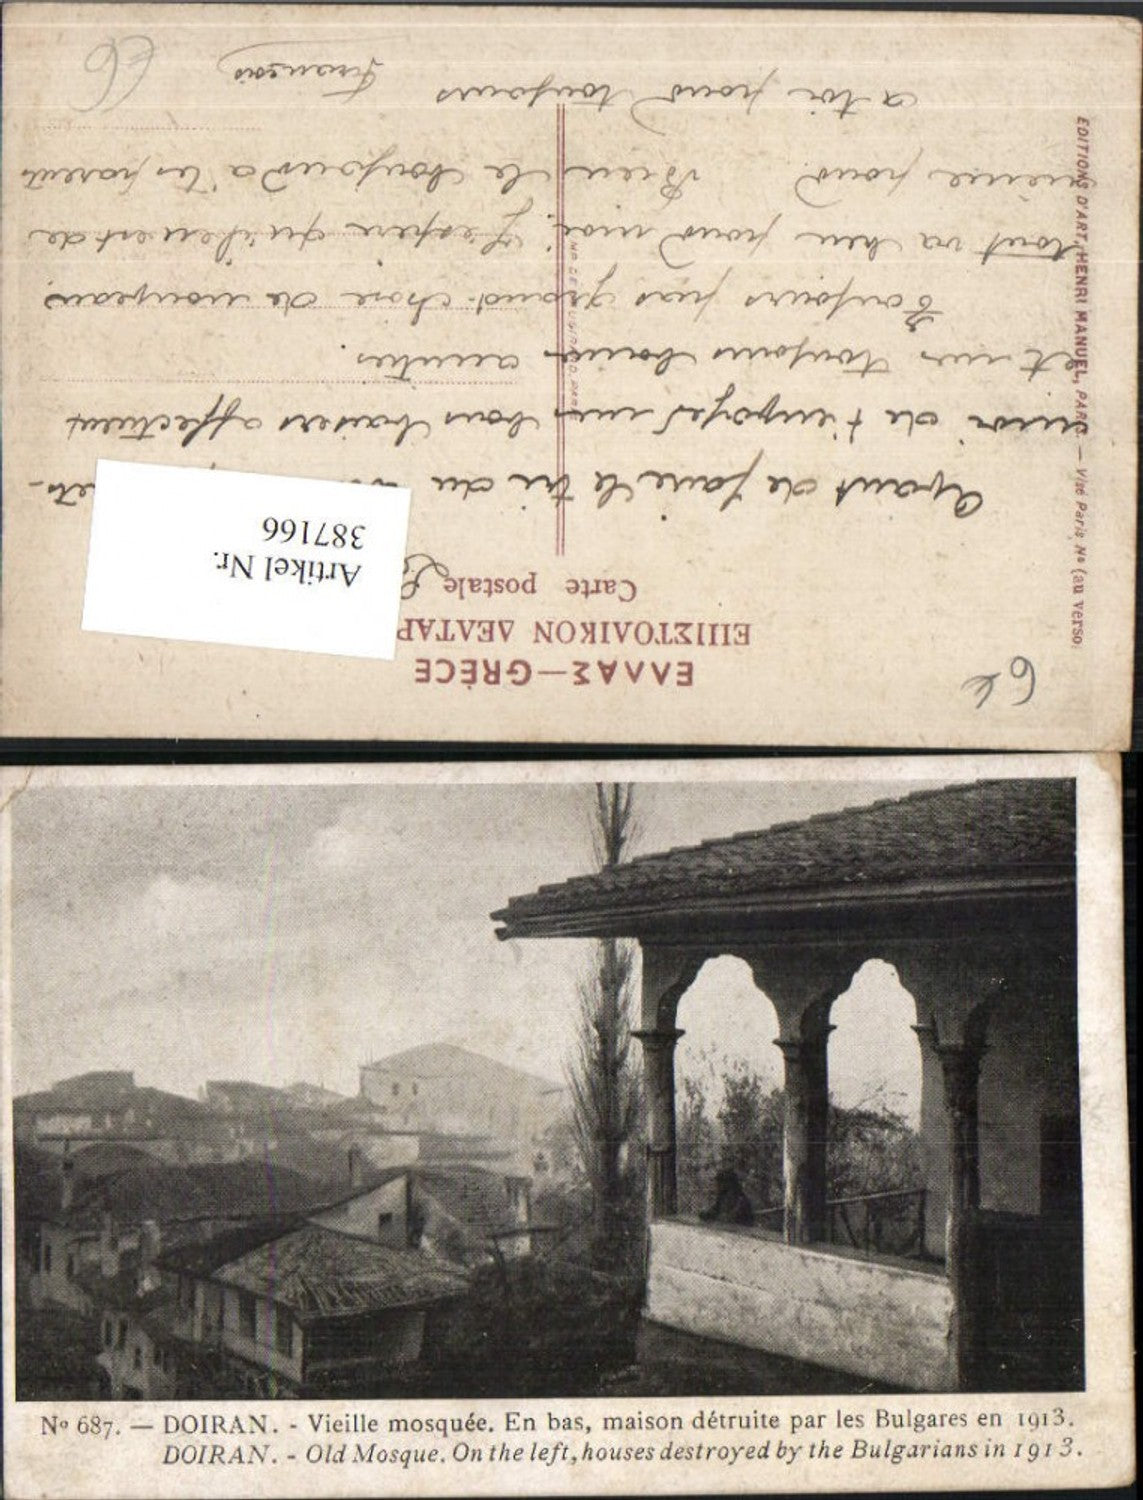 ΕΛΛΑΣ—GRÈCE
ΕΠΙΣΤΟΛΙΚΟΝ ΔΕΛΤΑΡ
Carte postale
Artikel Nr.
387166
6k
avant de faire le tri du
moi de t'envoyer mes bons baisers affectueux
et mes toujours bonnes amitiés.
Toujours pas grand chose de nouveau.
tout va bien pour moi. J'espère qu'il en est de
même pour Bien le bonjour à tes parents
a toi pour toujours
François
EDITIONS D'ART, HENRI MANUEL, PARIS — Visé Paris No (au verso
No 687. — DOIRAN. - Vieille mosquée. En bas, maison détruite par les Bulgares en 1913.
DOIRAN. - Old Mosque. On the left, houses destroyed by the Bulgarians in 1913.